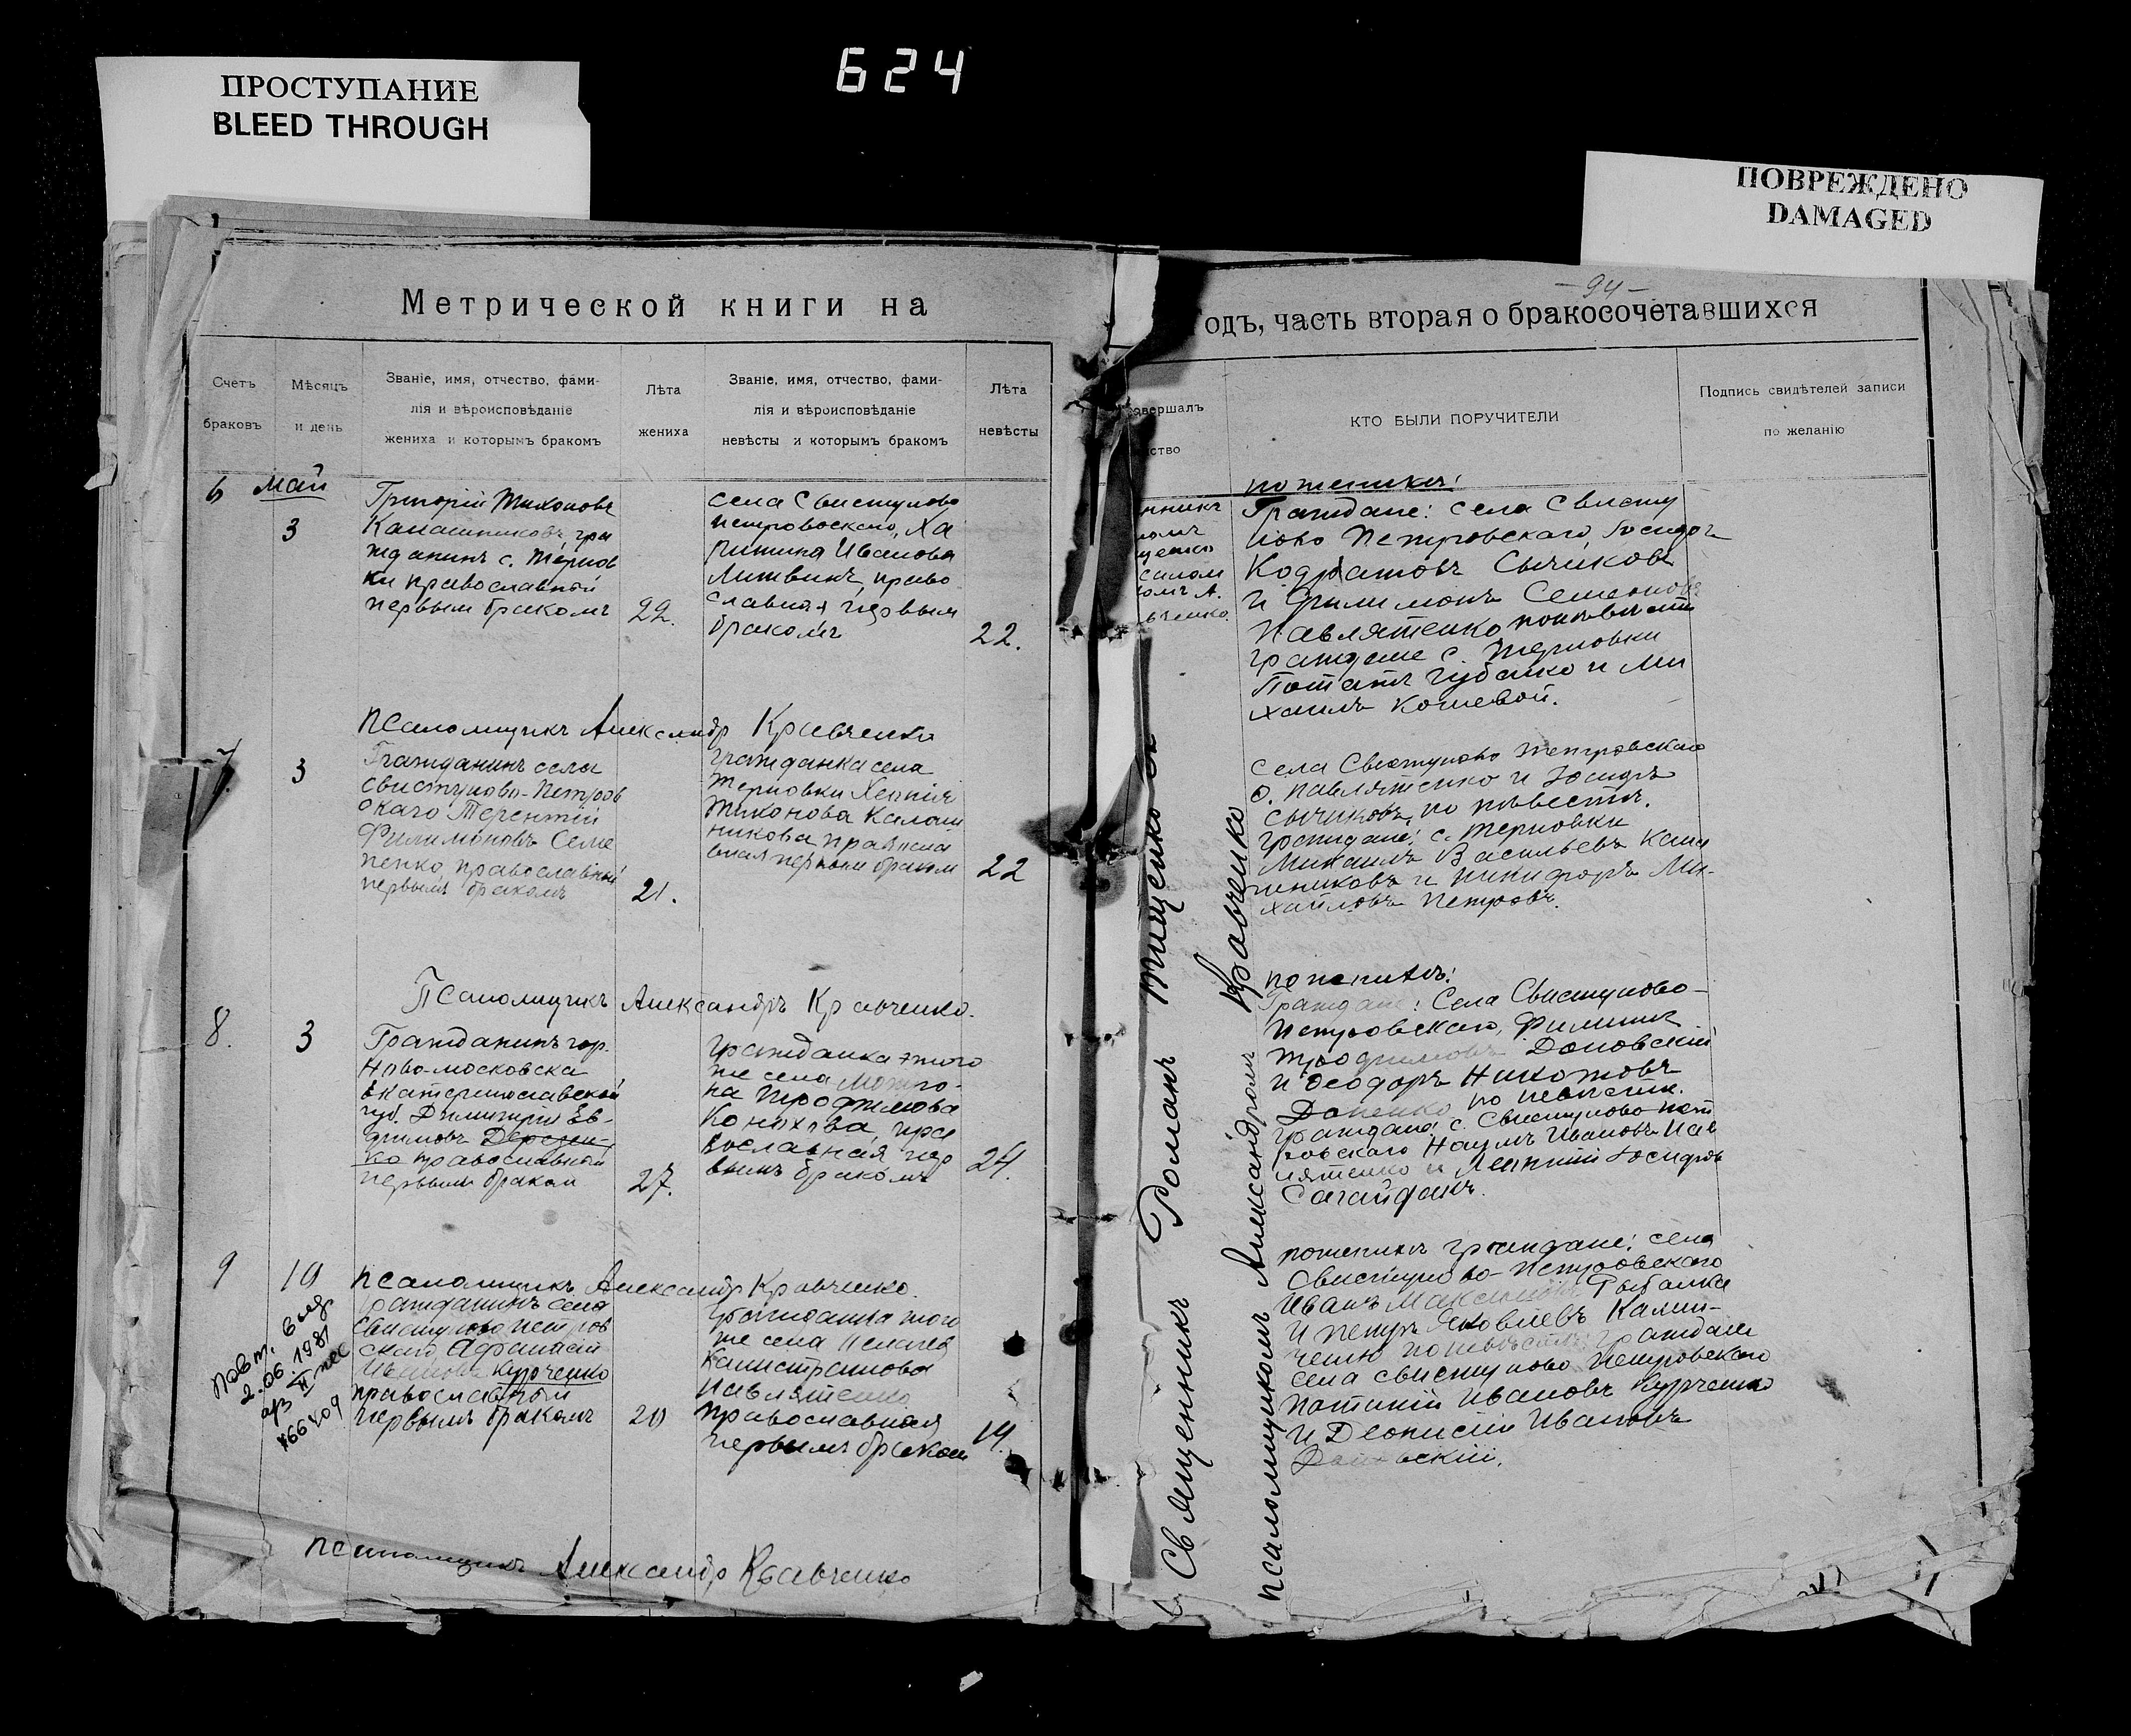 ПРОСТУПАНИЕ
BLEED THROUGH
624
ПОВРЕЖДЕНО
DAMAGED
Метрической книги на
-94-
одъ, часть вторая о бракосочетавшихся
Счетъ
браковъ
Мѣсяцъ
и день
Званіе, имя, отчество, фами-
лія и вѣроисповѣданіе
жениха и которымъ бракомъ
Лѣта
жениха
Званіе, имя, отчество, фами-
лія и вѣроисповѣданіе
невѣсты и которымъ бракомъ
Лѣта
невѣсты
овершалъ
ство
КТО БЫЛИ ПОРУЧИТЕЛИ
Подпись свидѣтелей записи
по желанію
6
май
3
Григорій Тихоновъ
Калашниковъ, гра
жданинъ с. Тернов
ки православный
первым бракомъ
22.
села Свистуново
Петровскаго, Ха
ритина Иванова
Литвинъ, право
славная первым
бракомъ
22.
по жениху:
Граждане: села Свисту
ново Петровскаго, Іосифъ
Кодратовъ Сычиковъ
и Филимонъ Семеновъ
Павлятенко по невѣстѣ
граждане с. Терновки
Потапъ Губанко и Ми
хаилъ Кошевой.
Псаломщикъ Александр Кравченко
7
3
Гражданинъ села
Свистуново-Петров
скаго Терентій
Филимоновъ Семе
ненко, православный
первымъ бракомъ
21.
гражданка села
Терновки
Тихонова Калаш
никова православ
ная первым браком
22
села Свистуново Петровскаго
Павлятенко и Іосифъ
Сычиковъ, по невѣстѣ.
граждане: с. Терновки
Михаилъ Васильевъ Кала
шниковъ и Никифоръ Ми-
хайловъ Петровъ.
Псаломщикъ Александръ Кравченко.
8.
3
Гражданинъ гор.
Ново-московска
Екатеринославской
губ. Димитрій Ев-
фимовъ
ко православный
первым браком
27.
гражданка этого
же села
на Трофимова
Конохова, пра
вославная пер
вымъ бракомъ
24.
по жениху:
Граждане: Села Свистуново-
Петровскаго, Филиппъ
Трофимовъ Доновскій
и Феодоръ
Доценко по невѣстѣ.
граждане с. Свистуново-Пет
ровскаго Наумъ Ивановъ Пав
лятенко и Іосифовъ
Сагайдакъ.
9
10
Псаломщикъ Александр Кравченко.
гражданинъ села
Свистуново Петров
скаго Афанасій
Ивановъ Курченко
православный
первымъ бракомъ
20
Гражданка того
же села Пелагея
Калистратова
Павлятенко
православная
первымъ браком
19.
Повт.
2.06.1981
по жениху граждане: села
Свистуново-Петровскаго
Иванъ Максимовъ Рыбалка
и Петръ Яковлевъ Калин-
ченко по невѣстѣ: граждане
села Свистуново Петровскаго
Ивановъ Курченко
и Діонисій Ивановъ
Псаломщикъ Александр Кравченко
Священникъ Романъ Тищенко
псаломщикомъ Александромъ Кравченко